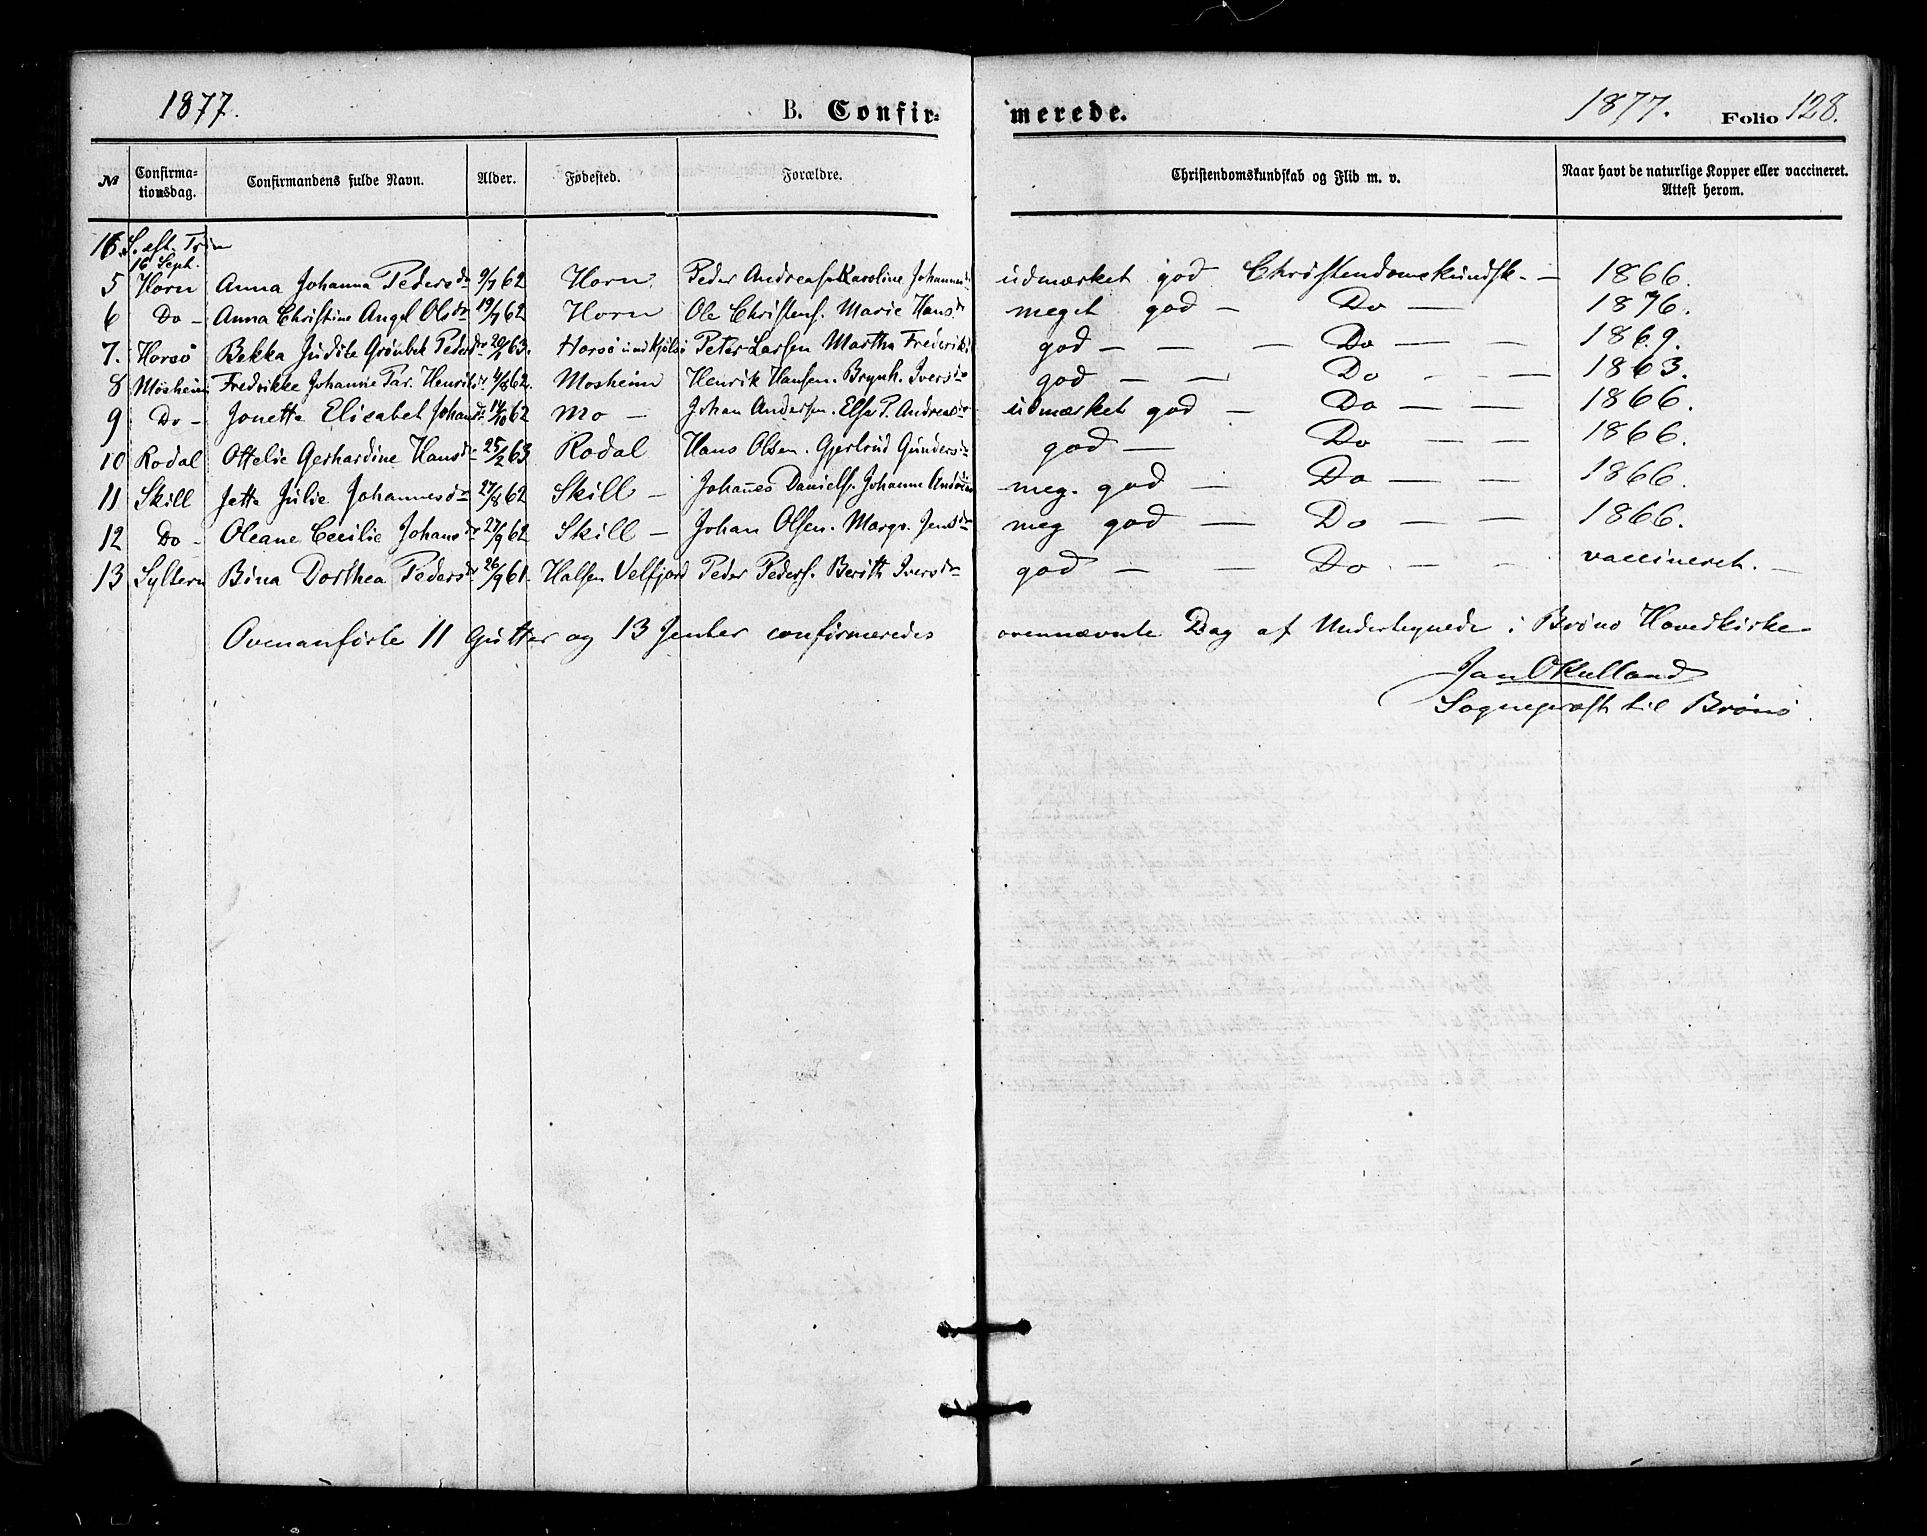 1877. B. Confir= merede. 1877. Folio 128.
№ Confirma=tionsdag. Confirmandens fulde Navn. Alder. Fødested. Forældre. Christendomskundskab og Flid m. v. Naar havt de naturlige Kopper eller vaccineret. Attest herom.
16. S. eft. Trin
16 Sept.
5 Horn Anna Johanna Pedersdr 9/7 62 Horn. Peder Andreas. Karoline Johannesd udmærket god Christendomskundsk. — 1866.
6 Do — Anna Christine Angel Olsdr 19/7 62 Horn Ole Christens. Marie Hansdr meget god — Do — 1876.
7. Horsø Bekka Judite Grønbek Pedersdr 20/1 63. Horsø Peter Larsen Martha Frederiksd god — — — Do — — 1869.
8 Mosheim Fredrikke Johanne Par. Henriksdr 4/8 62. Mosheim Henrik Hansen. Brynh. Iversdr god — — Do — — 1863.
9 Do — Jonetta Elisabet Johansdr 14/10 62 Mo — Johan Andersen. Else P. Andreasdr udmærket god — Do — — 1866.
10 Rodal Ottelie Gerhardine Hansdr 25/2 63 Rodal Hans Olsen. Gjertrud Gundersdr god — Do — — 1866.
11 Skill Jetta Julie Johannesdr 27/8 62 Skill — Johañes Daniels. Johanne meg. god — Do — — 1866.
12 Do — Oleane Cecilie Johansdr 27/9 62 Skill — Johan Olsen. Margr. Jensdr meg god — Do — — 1866.
13 Syltern Bina Dorthea Pedersdr 26/9 61. Halsen Velfjord Peder Peders. Berith Iversdr god — — Do — — vaccineret. —
Ovenanførte 11 Gutter og 13 Jenter confirmeredes ovennævnte Dag af Undertegnede i Brønø Hovedkirke
Jan O Kulland
Sognepræst til Brønø.